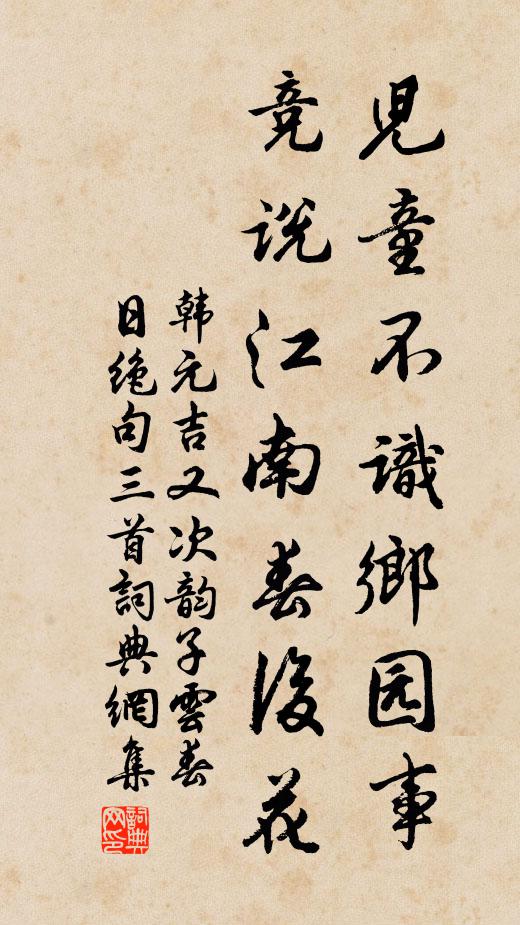 児童不識鄉园事
竞説江南春後花
韩元吉又次韵子雲春
日绝句三首詞典網集
詞典网印